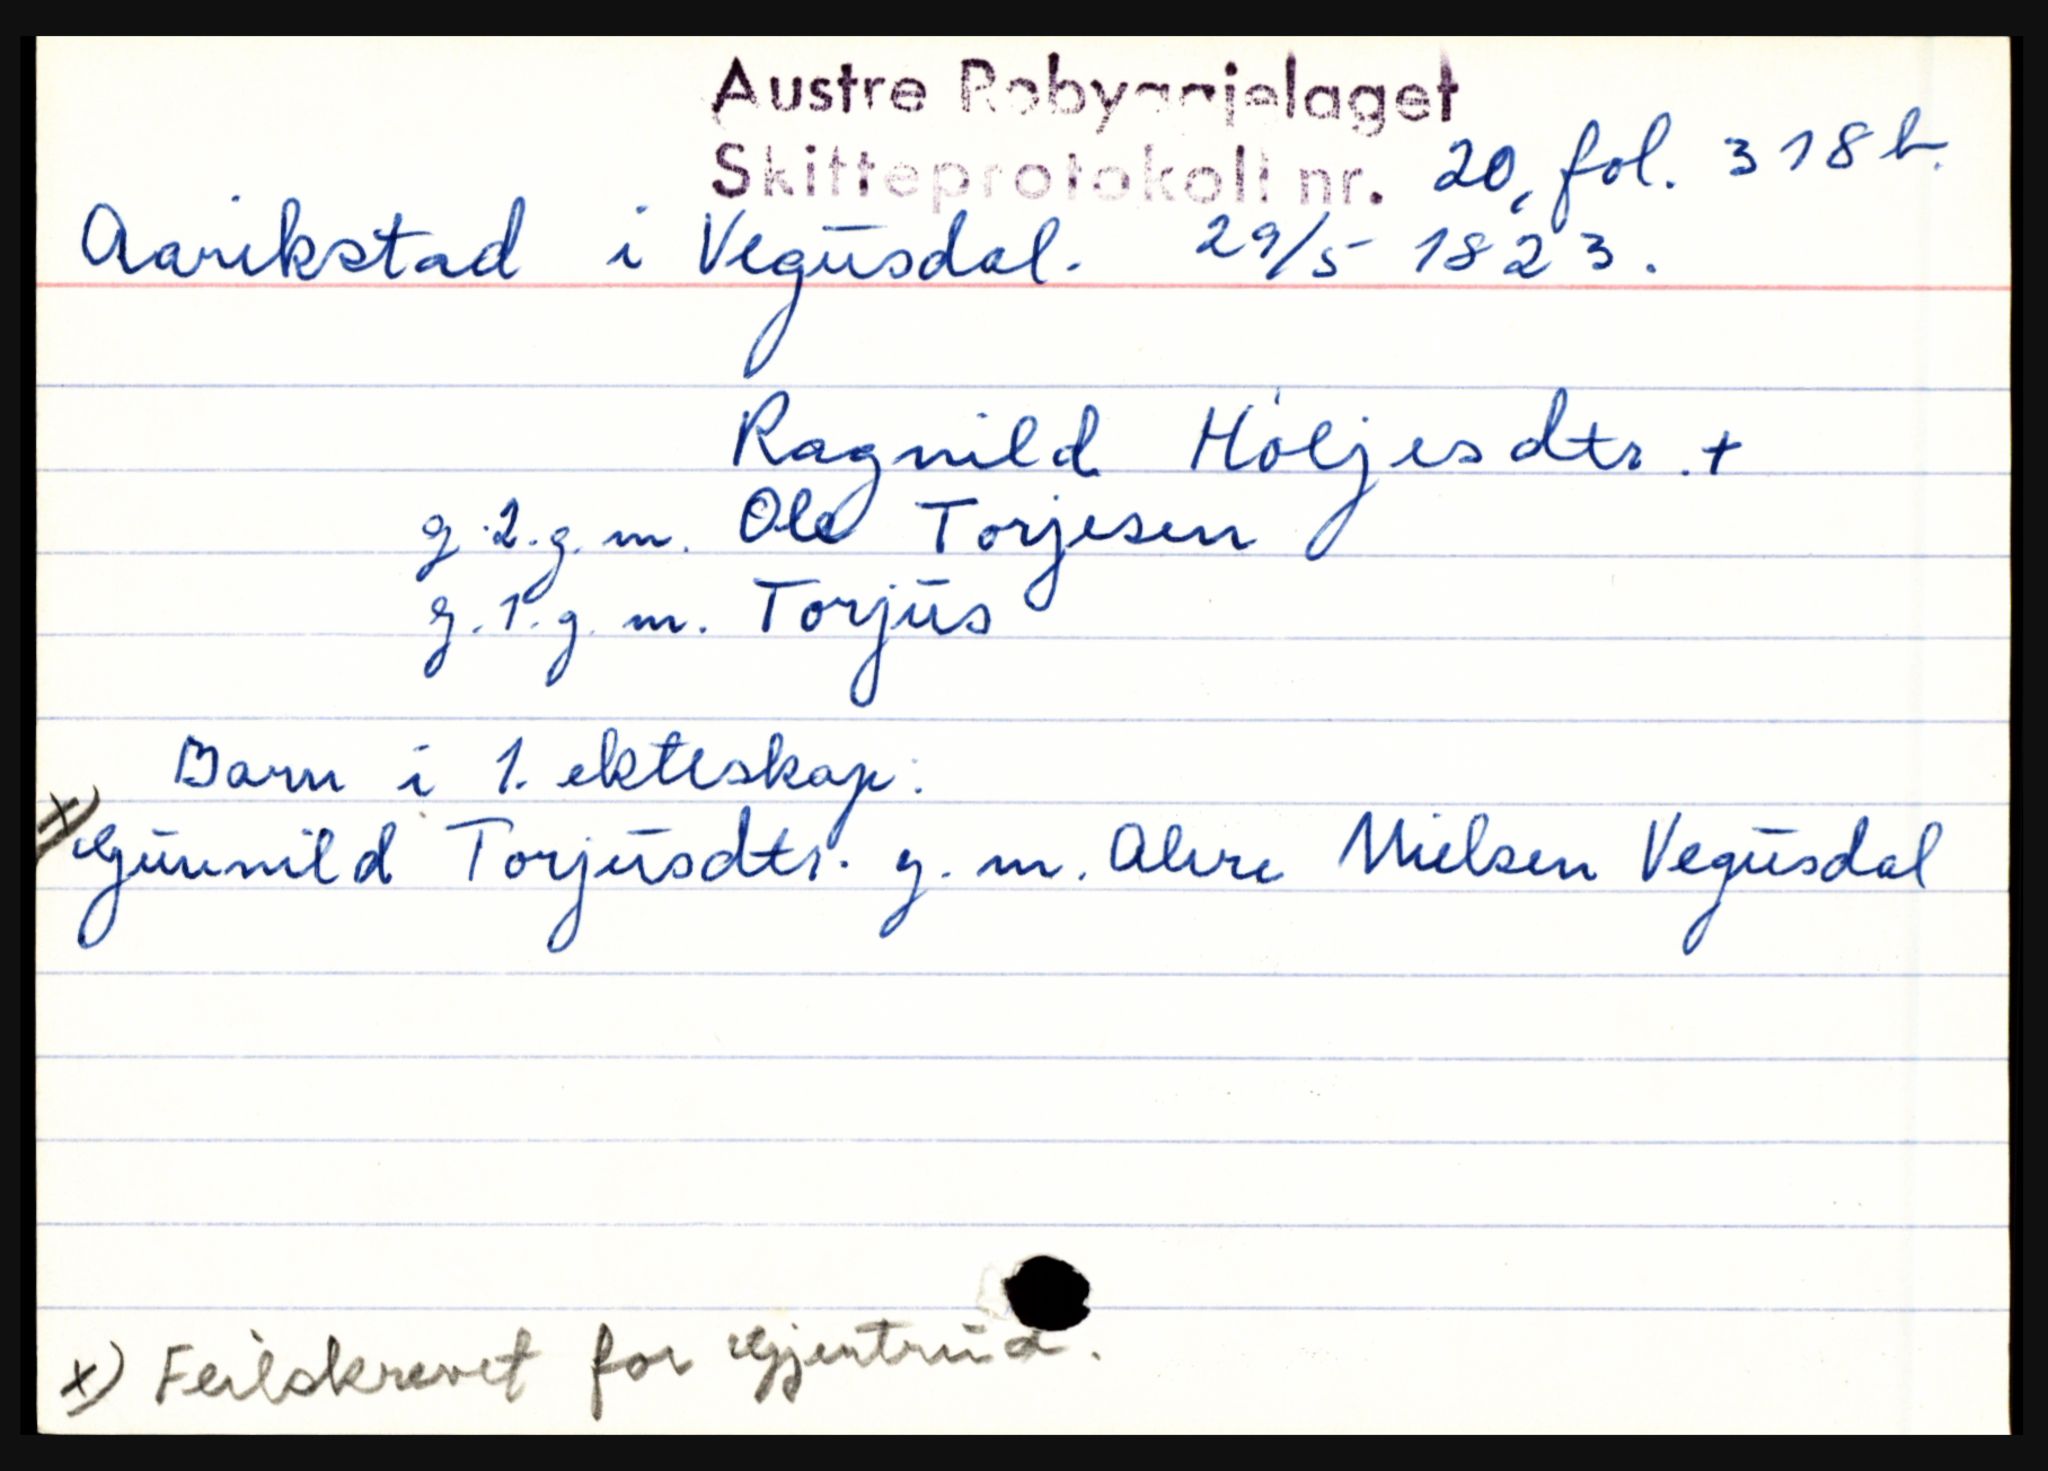 Austre Robyggjelaget
Skifteprotokoll nr. 20, fol. 318 b.
Aarikstad i Vegusdal. 29/5 1823.
Ragnild Höljesdtr. +
g. 2. g. m. Ole Torjesen
g. 1. g. m. Torjus
Barn i 1. ekteskap:
x) Gunnild Torjusdtr. g. m. Alvre Nielsen Vegusdal
x) Feilskrevet for Gjentrud.